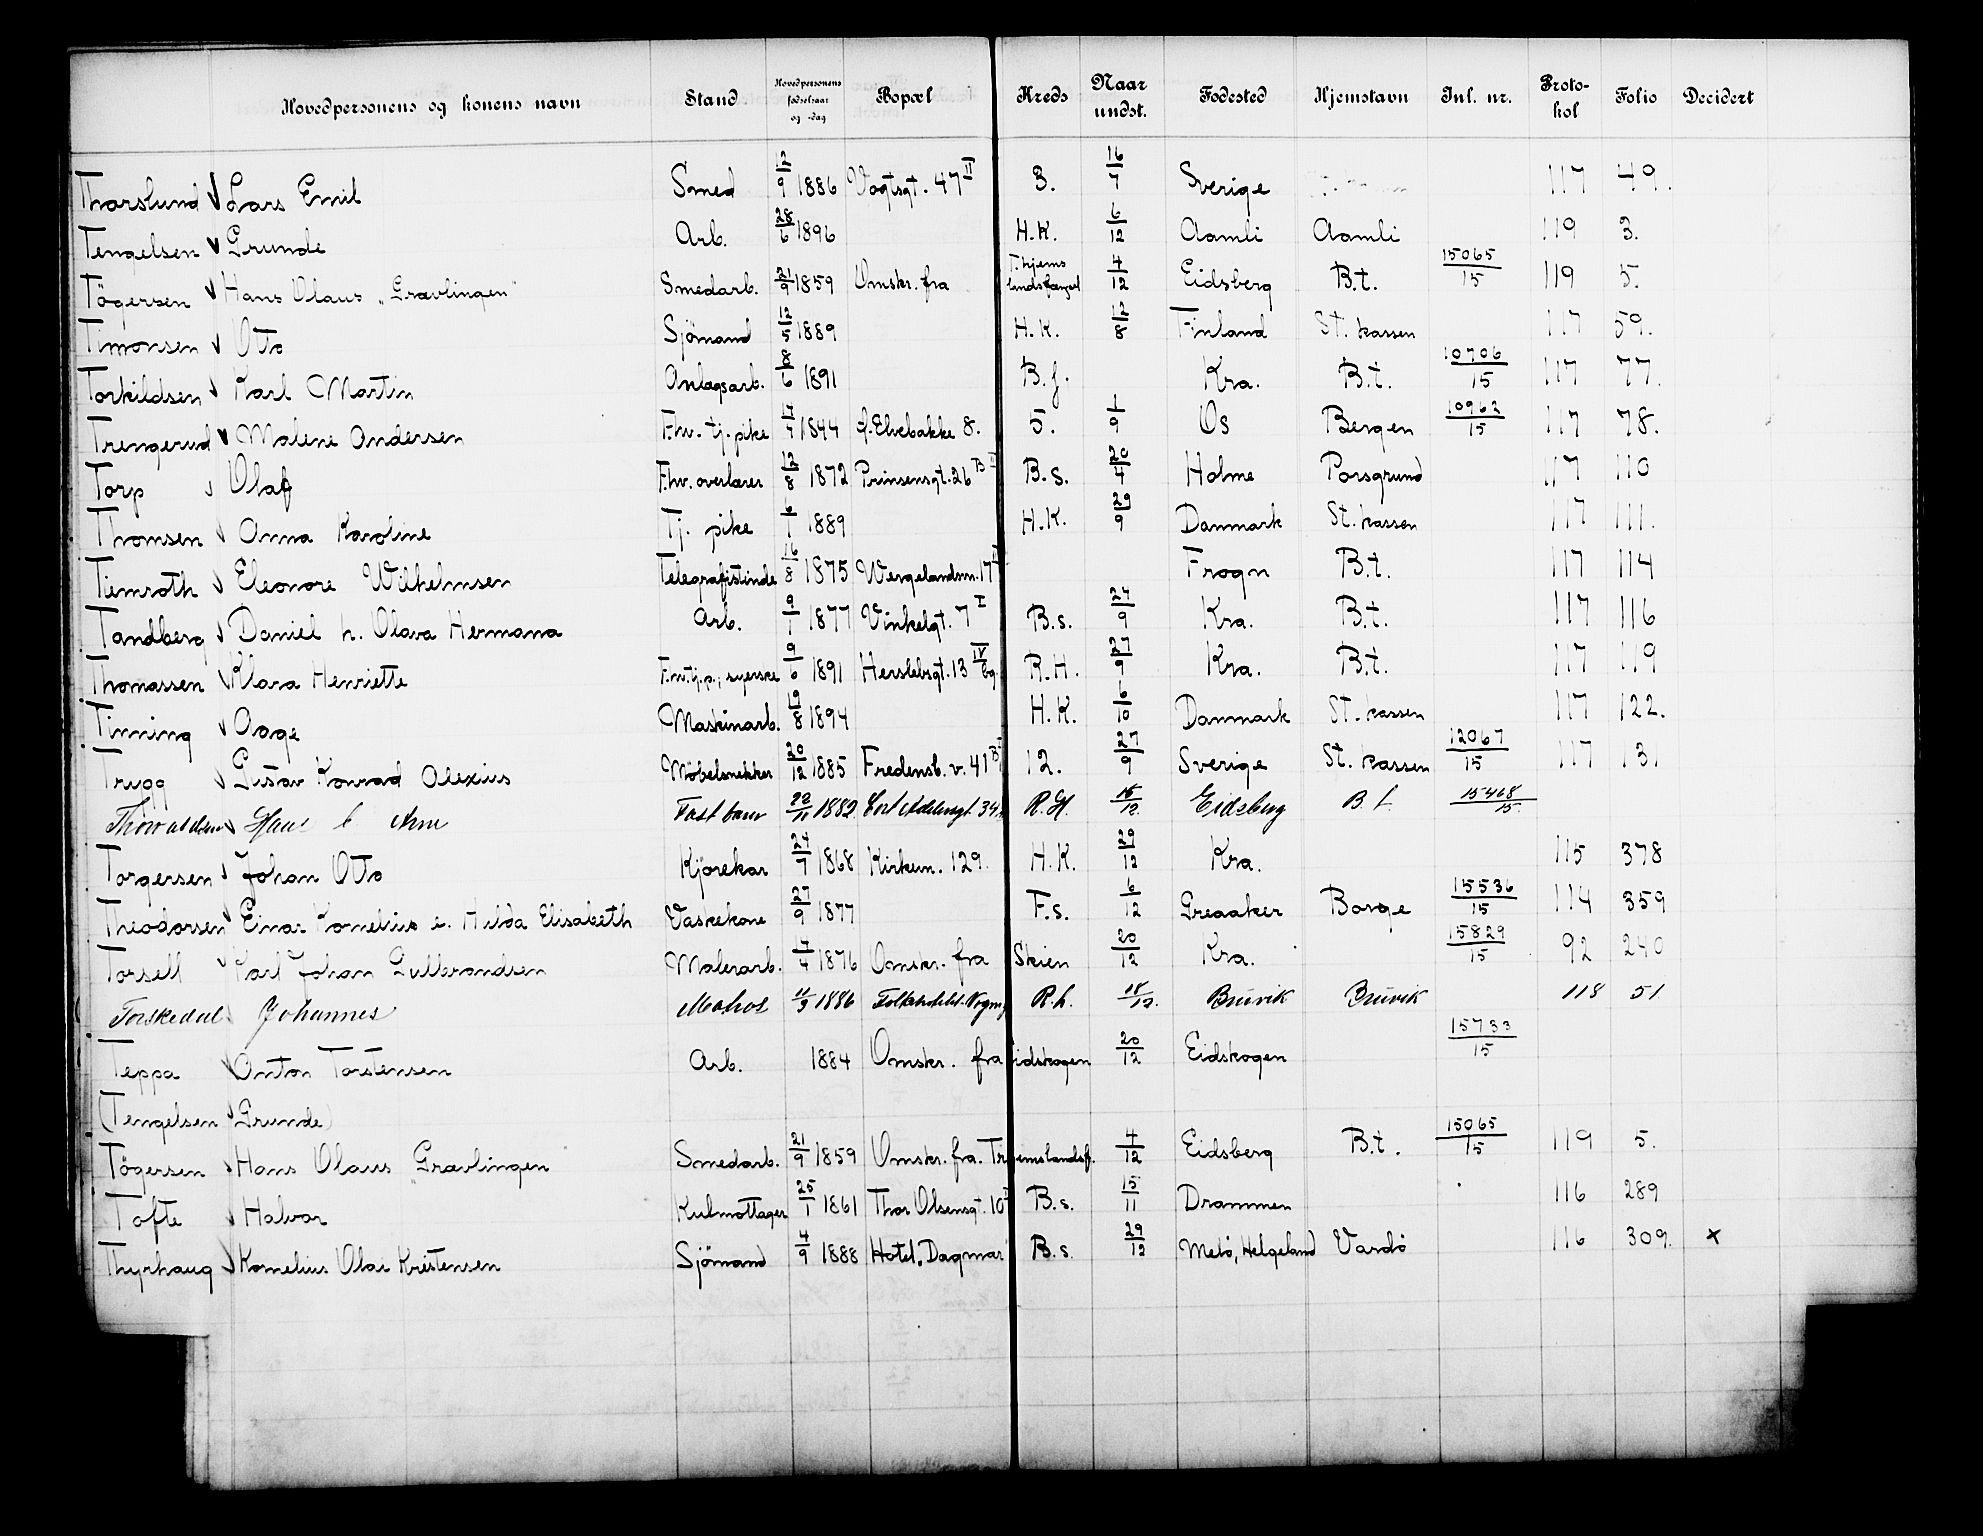 Hovedpersonens og konens navn Stand Hovedpersonens fødselsaar og -dag Bopæl Kreds Naar undst. Fødested Hjemstavn Inl. nr. Protokol Folio Decidert
Thorslund Lars Emil Smed 12/9 1886 Vogtsgt. 47 II 3. 16/7 Sverige 117 49.
Tengelsen Grunde Arb. 28/6 1896 H.K. 6/12 Aamli Aamli 119 3.
Tögersen Hans Olaus „Grævlingen" Smedarb. 21/9 1859 Omskr. fra T.hjems landsfængsel 4/12 Eidsberg B.t. 15065/15 119 5.
Timonsen Otto Sjömand 12/5 1889 H.K. 12/8 Finland St. kassen 117 59.
Torkildsen Karl Martin Anlagsarb. 8/6 1891 B.f. Kra. B.t. 10706/15 117 77.
Trengerud Malene Andersen F.hv. tj. pike 17/7 1844 Ø. Elvebakke 8. 5. 1/9 Os Bergen 10962/15 117 78.
Torp Olaf F.hv. overlærer 12/8 1872 Prinsensgt. 26 B B.s. 20/4 Holme Porsgrund 117 110
Thomsen Anna Karoline Tj. pike 6/1 1889 H.K. 29/9 Danmark St. kassen 117 111.
Tiemroth Eleonore Wilhelmsen Telegrafistinde 16/8 1875 Wergelandsv. 17 Frogn B.t. 117 114
Tandberg Daniel h. Olava Hermana Arb. 9/1 1877 Vinkelgt. 7 I B.s. 24/9 Kra. B.t. 117 116
Thomassen Klara Henriette F.hv. tj.p., syerske 9/6 1891 Herslebsgt. 13 IV bg. R.H. 27/9 Kra. B.t. 117 119
Tinning Aage Maskinarb. 19/8 1894 H.K. 6/10 Danmark St. kassen 117 122.
Trygg Gustav Konrad Alexius Möbelsnekker 20/12 1885 Fredensb. v. 41 B 12. 27/9 Sverige St. kassen 12067/15 117 131
Thorvaldsen Hans 1882 34 R.H. 15/12 Eidsberg B.t. 15468/15
Torgersen Johan Otto Kjörekar 24/7 1868 Kirkev. 129. H.K. 29/12 Kra. 115 378
Theodorsen Einar Kornelius e. Hilda Elisabeth Vaskekone 27/9 1877 F.s. 6/12 Greaaker Borge 15536/15 114 359
Torsell Karl Johan Gulbrandsen Malerarb. 7/4 1876 Omskr. fra Skien 20/12 Kra. 15829/15 92 240
Torskedal Johannes 11/9 1886 R.h. 18/12. Bruvik Bruvik 118 51
Teppa Anton Torstensen Arb. 1884 Omskr. fra Eidskogen 20/12 Eidskogen 15733/15
(Tengelsen Grunde)
Tögersen Hans Olaus Grævlingen Smedarb. 21/9 1859 Omskr. fra. Tr.hjemslandsf. 4/12 Eidsberg B.t. 15065/15 119 5.
Tofte Halvor Kulmottager 25/1 1861 Thor Olsensgt. 10 B.s. 15/11 Drammen 116 289
Thyrhaug Kornelius Olai Kristensen Sjömand 4/9 1888 Hotel „Dagmar" B.s. 29/12 Melö, Helgeland Vardö 116 309. x